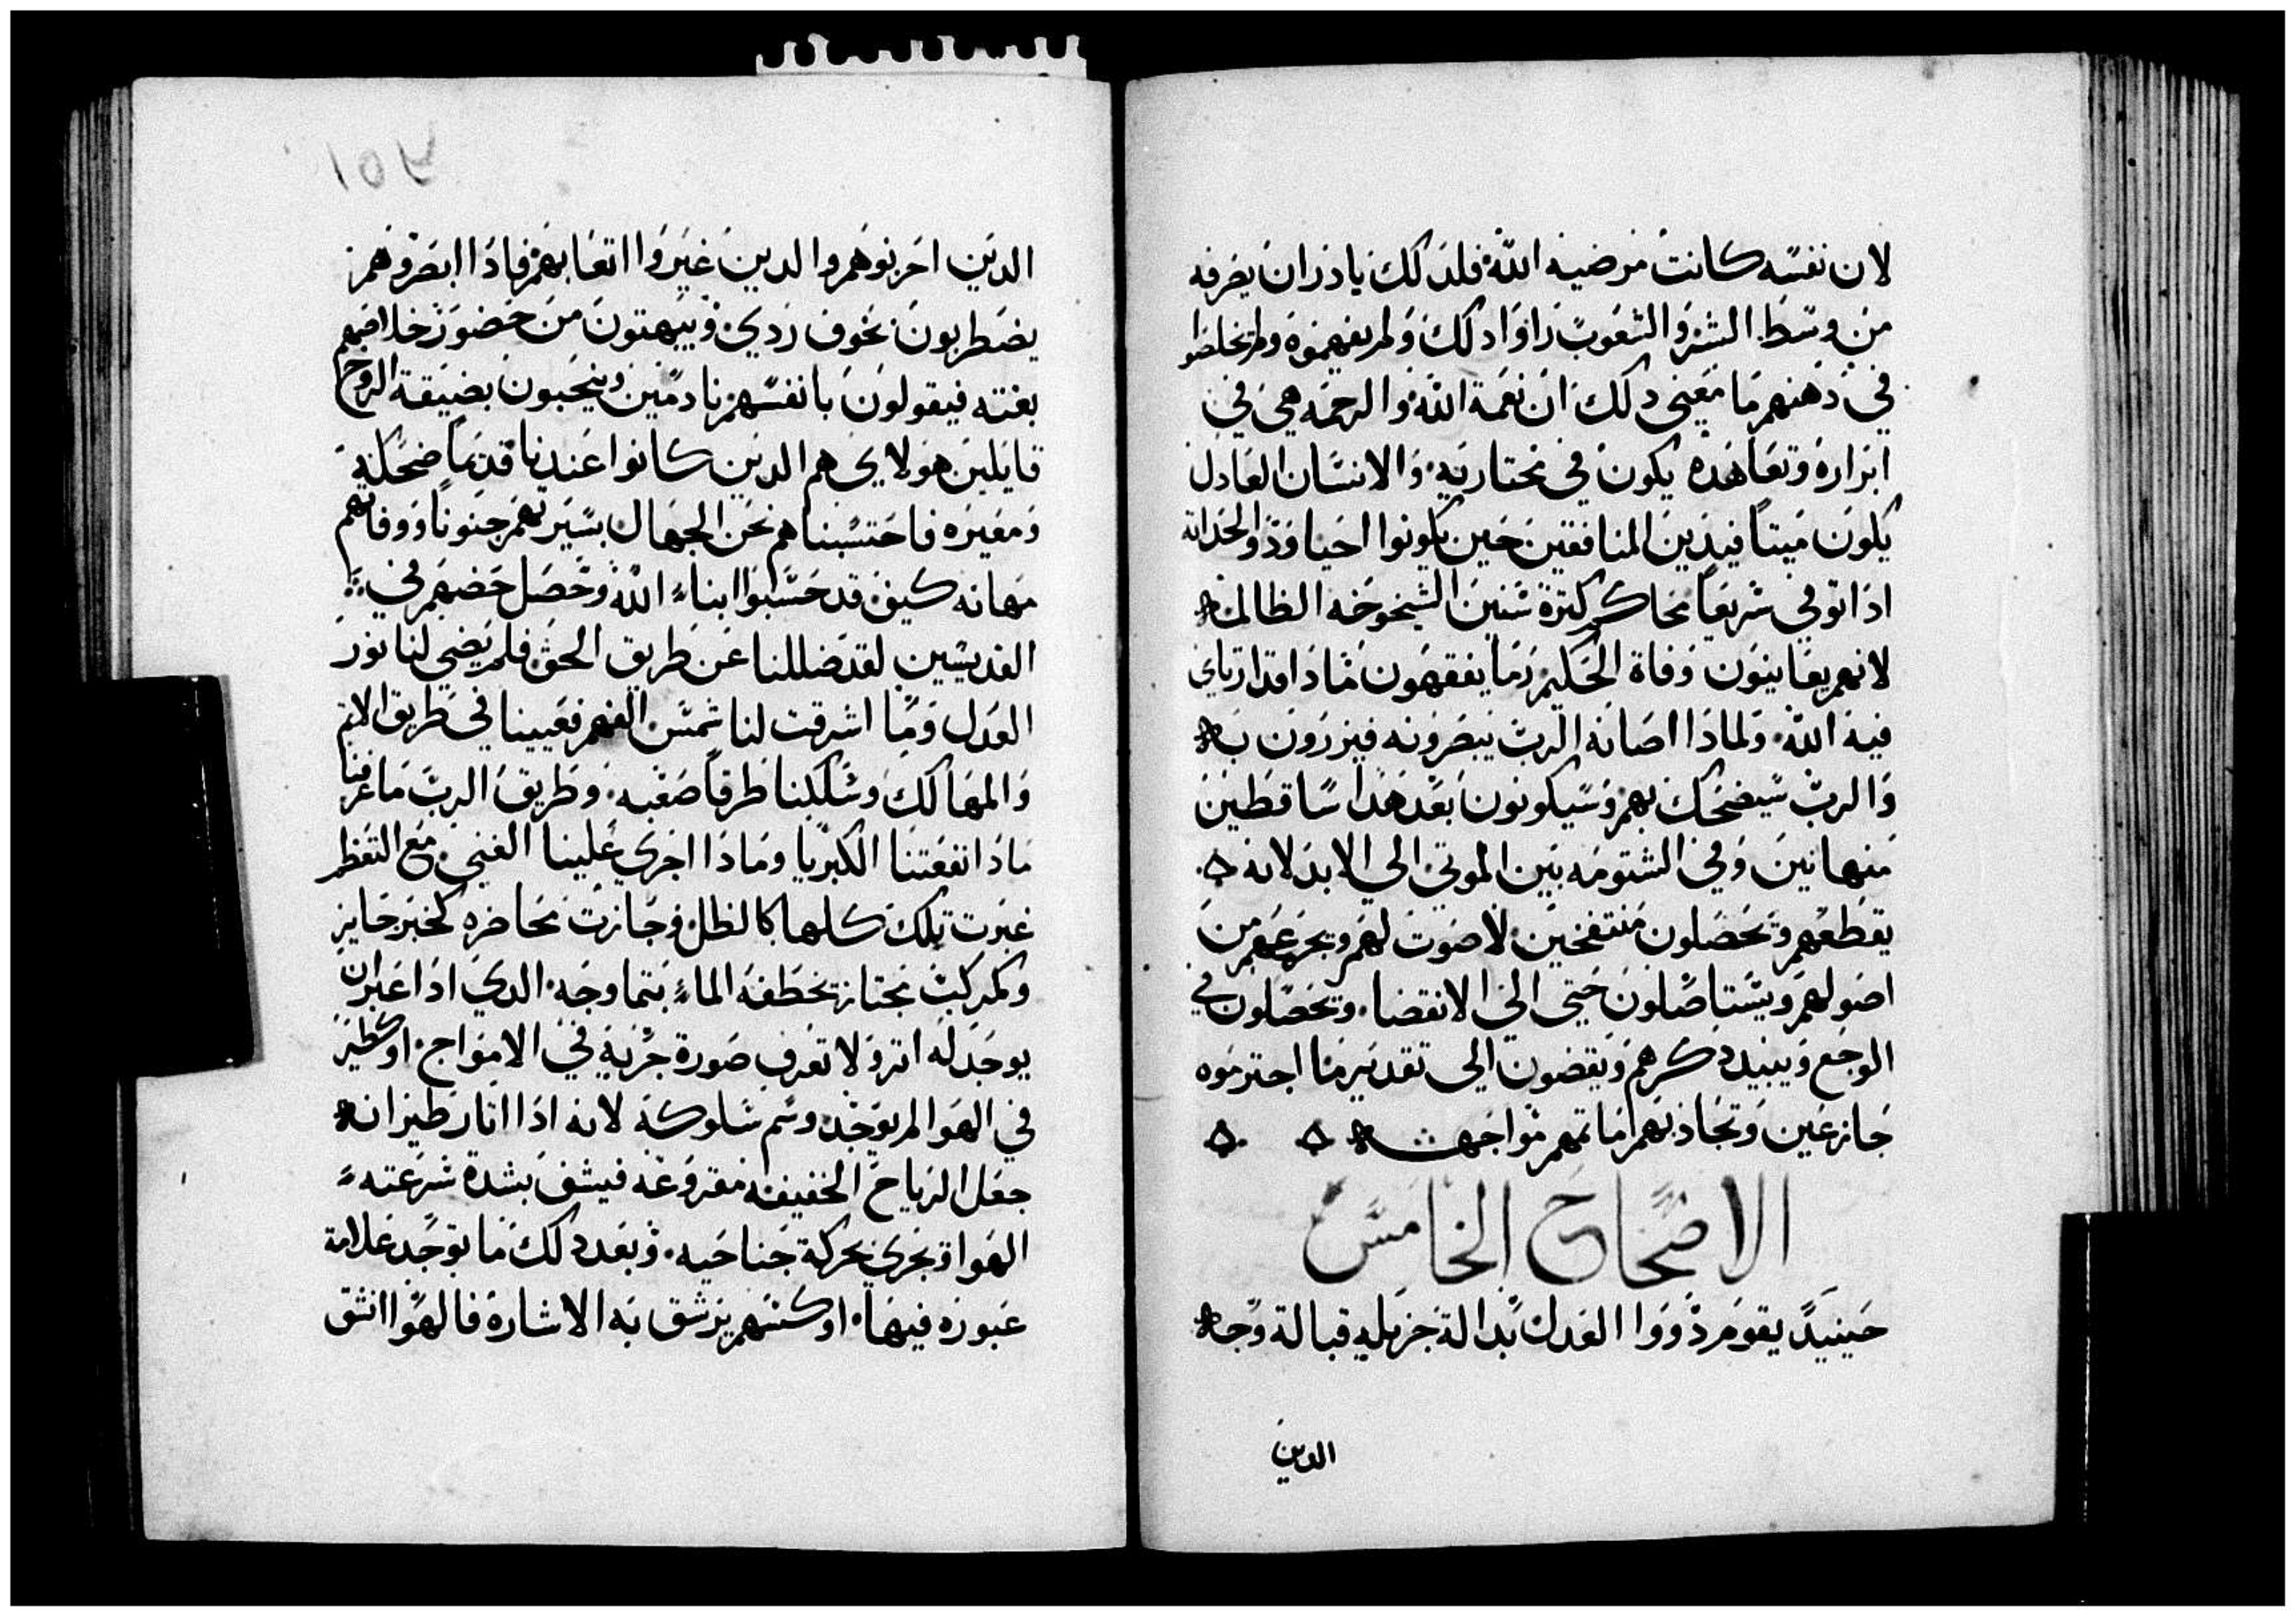 لان نفسه كانت مرضيه الله فلدلك بادر ان يصرفه
من وسط الشر والشعوب راوا دلك ولم يفهموه ولم يخلصوا
في دهنهم ما معني دلك ان نعمة الله والرحمه هي في
ابراره وتعاهده يكون في مختاريه والانسان العادل
يكون ميتا فيدين المنافقين حين يكونوا احيا ودو الحداثة
ادا توفي سريعا يحاكم كثرة سنين الشيخوخه الظالمه
لانهم يعاينون وفاة الحكيم وما يفقهون مادا قد ارتاي
فيه الله ولمادا اصانه الرب يبصرونه فيزرون به
والرب سيضحك بهم وسيكونون بعد هدا ساقطين
منهانين وفي الشتومه بين الموتي الي الابد لانه
يقطعهم وتحصلون منتفخين لا صوت لهم ويجزعهم من
اصولهم ويستاصلون حتى الي الانقضا وتحصلون في
الوجع ويبيد دكرهم ويقضون الي تقدير ما اجترموه
جازعين وتجادبهم اماتهم مواجهه
الاصحاح الخامس
حينيد يقوم دووا العدل بدالة جزيله قبالة وجه
الدين
١٥٢
الدين احزنوهم والدين غيروا اتعابهم فادا ابصروهم
يضطربون بخوف ردي ويبهتون من حضور خلاصهم
بغته فيقولون بانفسهم نادمين وينحبون بضيقة الروح
قايلين هولاي هم الدين كانوا عندنا قديما ضحكة
ومعيره فاحتسبناهم نحن الجهال بسيرتهم جنونا ووفاتهم
مهانه كيف قد حسبوا ابناء الله وحصل حضهم في
القديسين لقد ضللنا عن طريق الحق فلم يضي لنا نور
العدل وما اشرقت لنا شمس الفهم فعيينا في طريق الاثم
والمهالك وسلكنا طرقا صعبه وطريق الرب ما عرفنا
مادا نفعتنا الكبريا ومادا اجري علينا الغني مع التعظم
عبرت تلك كلها كالظل وجازت محاضره كخبر جايز
وكمركب مجتاز يخطفه الماء بتماوجه الدي ادا عبر لن
يوجد له اثر ولا تعرف صورة جريه في الامواج او كطير
في الهوا لم يوجد وسم سلوكه لانه ادا اثار طيرانه
جعل الرياح الخفيفه مقروعه فيشف بشدة سرعته
الهوا ويجري بحركة جناحيه وبعد دلك ما توجد علامة
عبوره فيها او كسهم يرشق به الاشارة فالهوا انشق